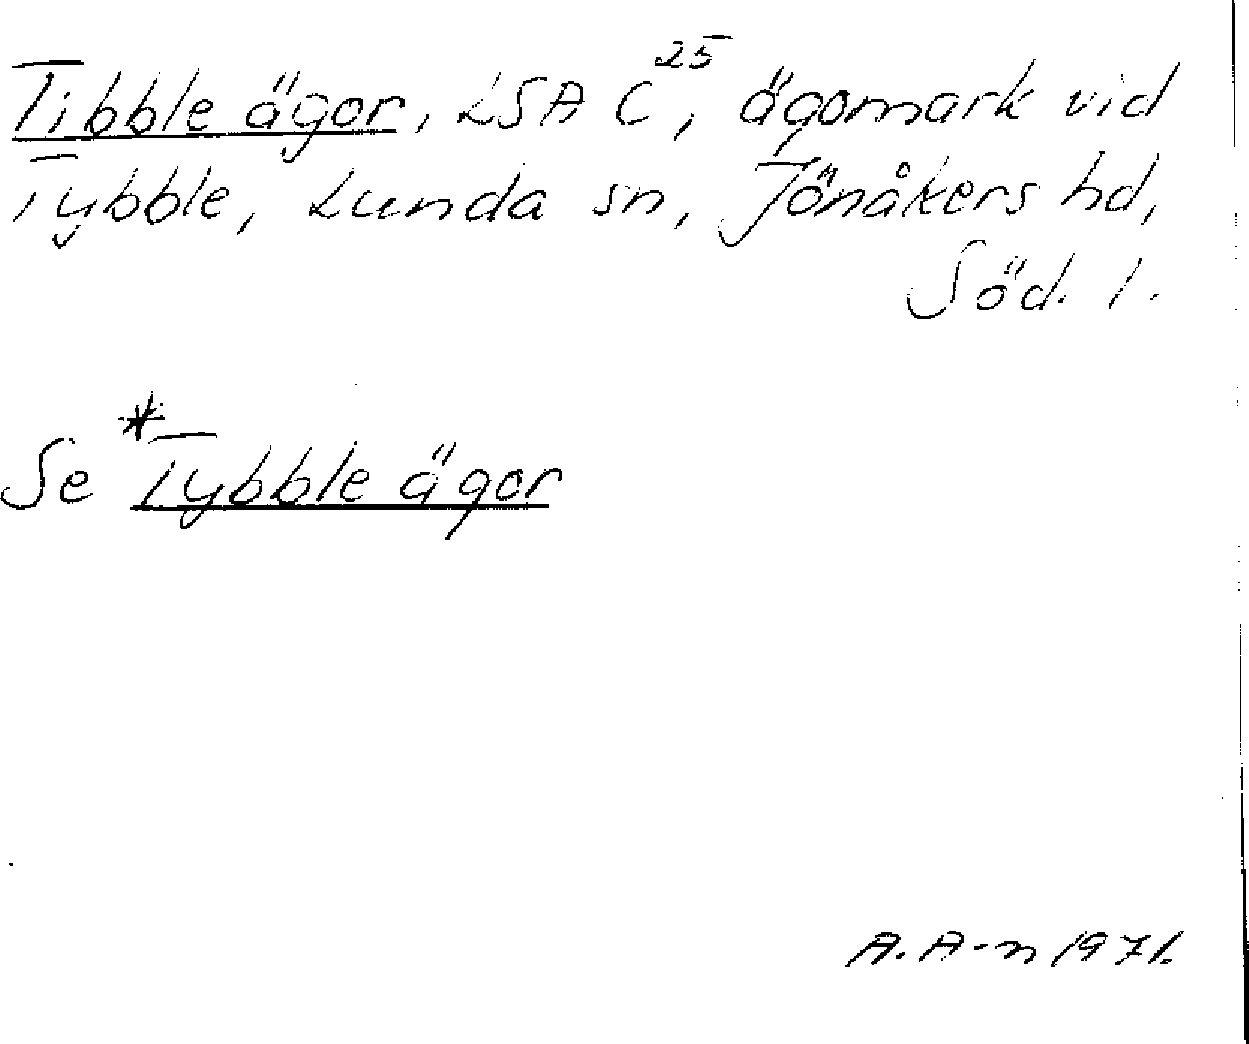 Tibble ägor, LSA C²⁵, ägomark vid
Tybble, Lunda sn, Jönåkers hd,
Söd. l.
Se *Tybble ägor
A.A-n 1971.